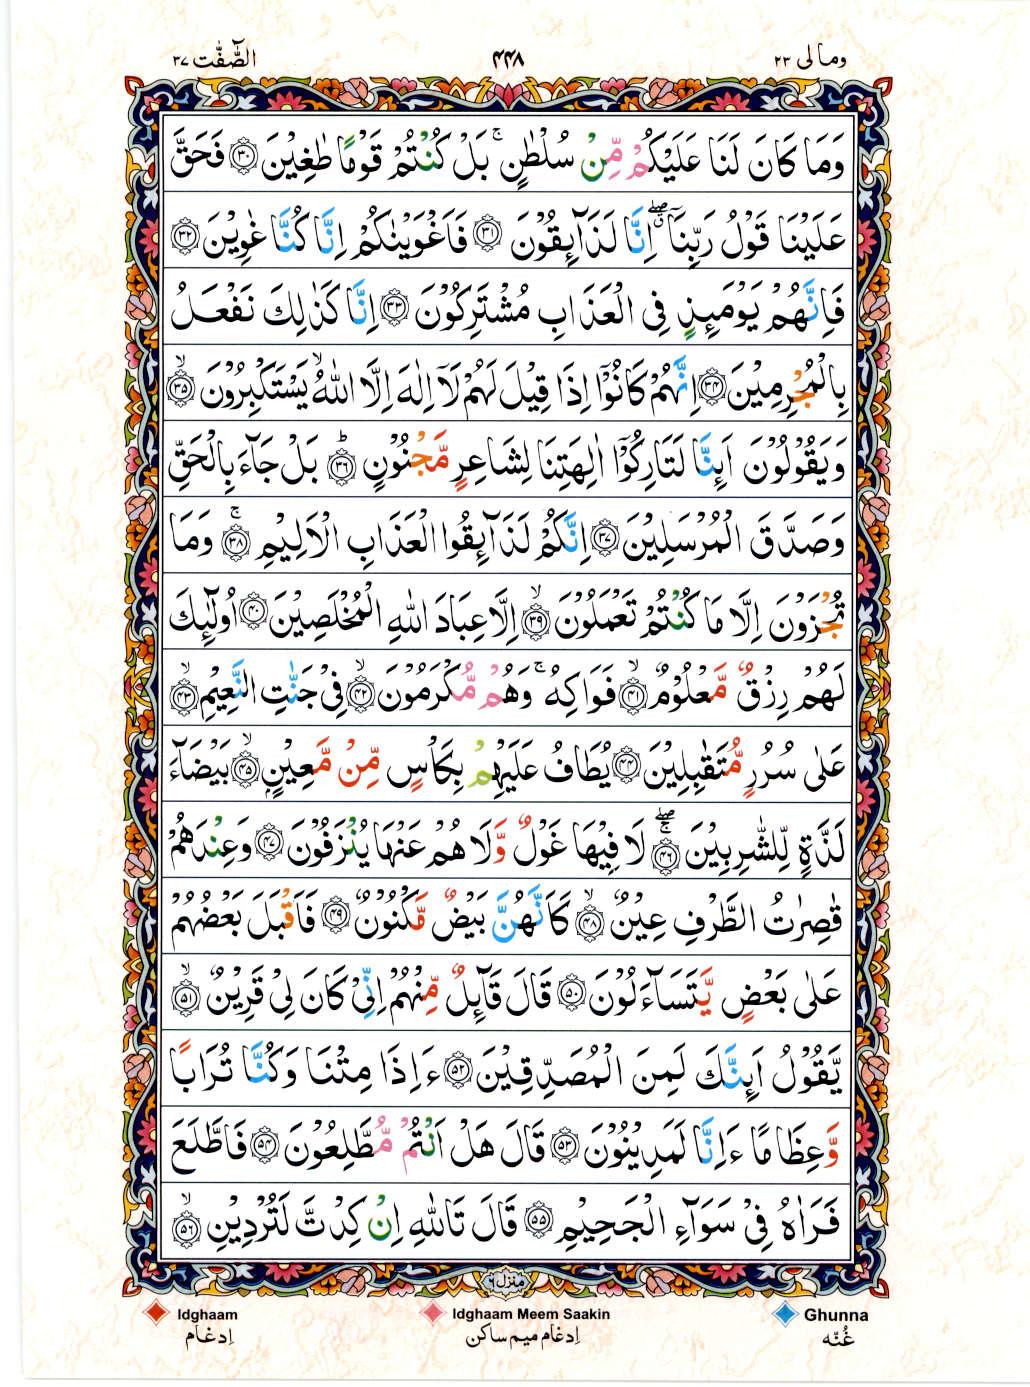 ومالی ۲۳
۴۴۸
الصّٰٓفّٰت ۳۷
وَمَا كَانَ لَنَا عَلَيْكُمْ مِّنْ سُلْطٰنٍ ۚ بَلْ كُنْتُمْ قَوْمًا طٰغِيْنَ ۝۳۰ فَحَقَّ
عَلَيْنَا قَوْلُ رَبِّنَاۤ ۖ اِنَّا لَذَآىِٕقُوْنَ ۝۳۱ فَاَغْوَيْنٰكُمْ اِنَّا كُنَّا غٰوِيْنَ ۝۳۲
فَاِنَّهُمْ يَوْمَىِٕذٍ فِى الْعَذَابِ مُشْتَرِكُوْنَ ۝۳۳ اِنَّا كَذٰلِكَ نَفْعَلُ
بِالْمُجْرِمِيْنَ ۝۳۴ اِنَّهُمْ كَانُوْۤا اِذَا قِيْلَ لَهُمْ لَاۤ اِلٰهَ اِلَّا اللّٰهُ ۙ يَسْتَكْبِرُوْنَ ۝۳۵ ۙ
وَيَقُوْلُوْنَ اَىِٕنَّا لَتَارِكُوْۤا اٰلِهَتِنَا لِشَاعِرٍ مَّجْنُوْنٍ ۝۳۶ ؕ بَلْ جَآءَ بِالْحَقِّ
وَصَدَّقَ الْمُرْسَلِيْنَ ۝۳۷ اِنَّكُمْ لَذَآىِٕقُوا الْعَذَابِ الْاَلِيْمِ ۝۳۸ ۚ وَمَا
تُجْزَوْنَ اِلَّا مَا كُنْتُمْ تَعْمَلُوْنَ ۝۳۹ ۙ اِلَّا عِبَادَ اللّٰهِ الْمُخْلَصِيْنَ ۝۴۰ اُولٰٓىِٕكَ
لَهُمْ رِزْقٌ مَّعْلُوْمٌ ۝۴۱ ۙ فَوَاكِهُ ۚ وَهُمْ مُّكْرَمُوْنَ ۝۴۲ ۙ فِىْ جَنّٰتِ النَّعِيْمِ ۝۴۳ ۙ
عَلٰى سُرُرٍ مُّتَقٰبِلِيْنَ ۝۴۴ يُطَافُ عَلَيْهِمْ بِكَاْسٍ مِّنْ مَّعِيْنٍۭ ۝۴۵ ۙ بَيْضَآءَ
لَذَّةٍ لِّلشّٰرِبِيْنَ ۝۴۶ ۖۚ لَا فِيْهَا غَوْلٌ وَّلَا هُمْ عَنْهَا يُنْزَفُوْنَ ۝۴۷ وَعِنْدَهُمْ
قٰصِرٰتُ الطَّرْفِ عِيْنٌ ۝۴۸ ۙ كَاَنَّهُنَّ بَيْضٌ مَّكْنُوْنٌ ۝۴۹ فَاَقْبَلَ بَعْضُهُمْ
عَلٰى بَعْضٍ يَّتَسَآءَلُوْنَ ۝۵۰ قَالَ قَآىِٕلٌ مِّنْهُمْ اِنِّىْ كَانَ لِىْ قَرِيْنٌ ۝۵۱ ۙ
يَّقُوْلُ اَىِٕنَّكَ لَمِنَ الْمُصَدِّقِيْنَ ۝۵۲ ءَاِذَا مِتْنَا وَكُنَّا تُرَابًا
وَّعِظَامًا ءَاِنَّا لَمَدِيْنُوْنَ ۝۵۳ قَالَ هَلْ اَنْتُمْ مُّطَّلِعُوْنَ ۝۵۴ فَاطَّلَعَ
فَرَاٰهُ فِىْ سَوَآءِ الْجَحِيْمِ ۝۵۵ قَالَ تَاللّٰهِ اِنْ كِدْتَّ لَتُرْدِيْنِ ۝۵۶ ۙ
منزل ۶
Idghaam Idghaam Meem Saakin Ghunna
اِدغام اِدغام میم ساکن غُنّه